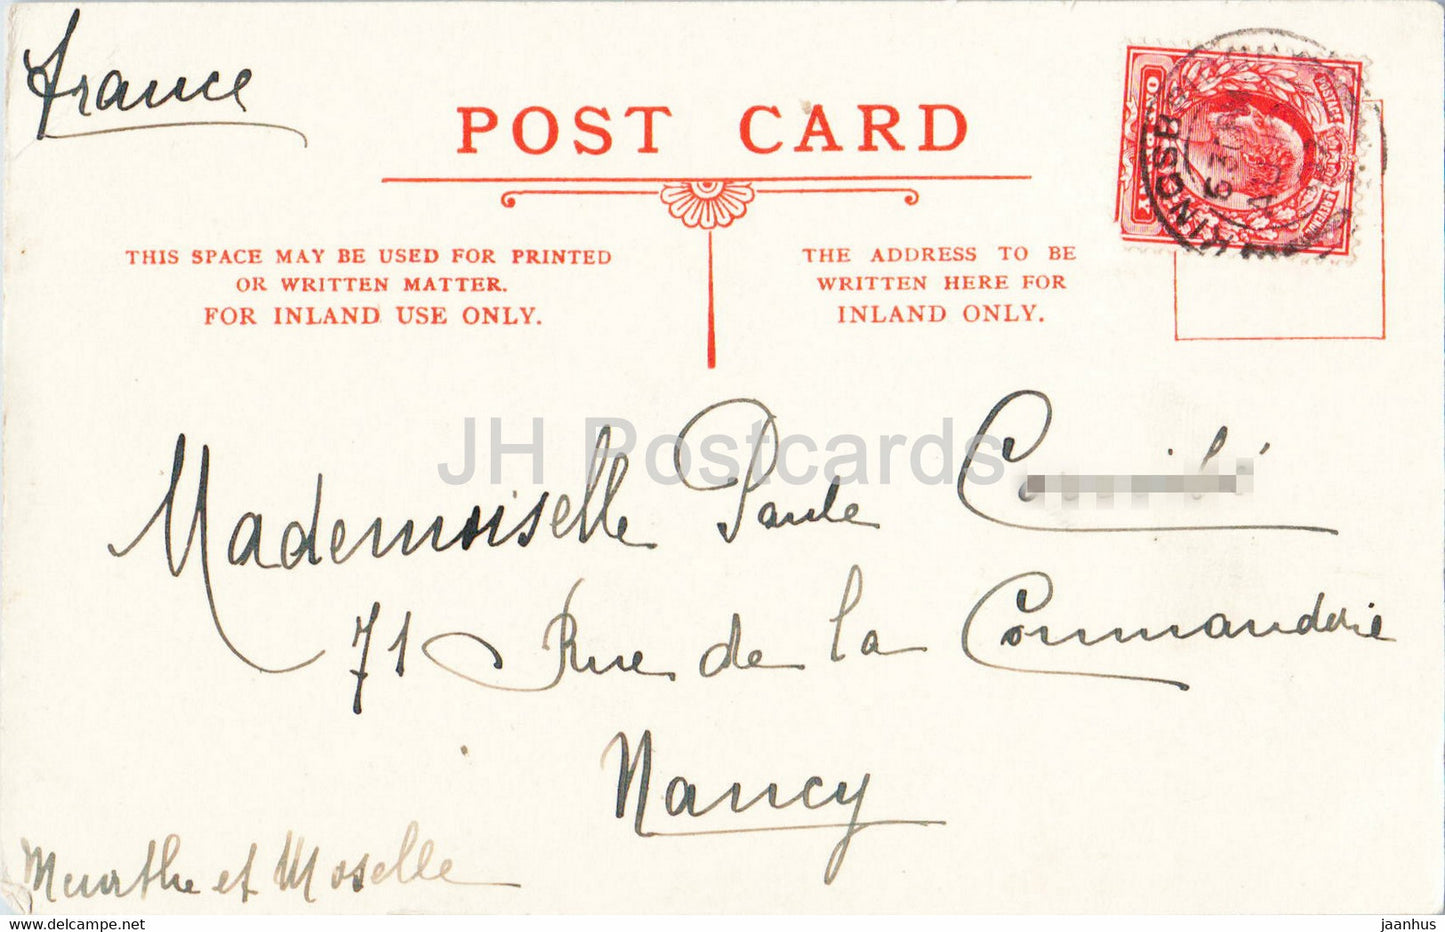 France
POST CARD
THIS SPACE MAY BE USED FOR PRINTED
OR WRITTEN MATTER.
FOR INLAND USE ONLY.
THE ADDRESS TO BE
WRITTEN HERE FOR
INLAND ONLY.
POSTAGE
KINGSB
JH Postcards
Mademoiselle Paule
71 Rue de la Commanderie
Nancy
Meurthe et Moselle
jaanhus